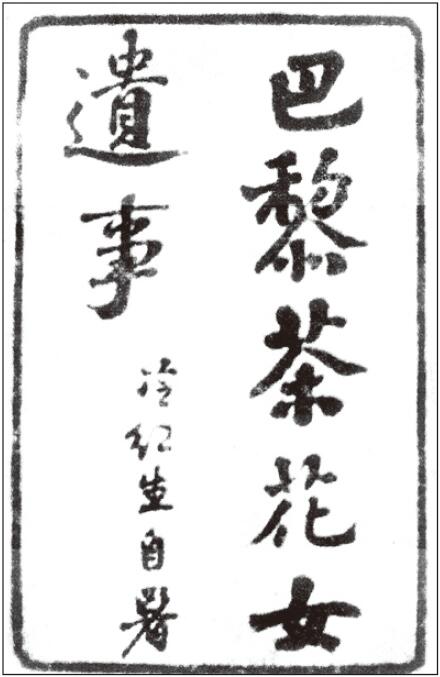 巴黎茶花女
遺事
冷紅生自署